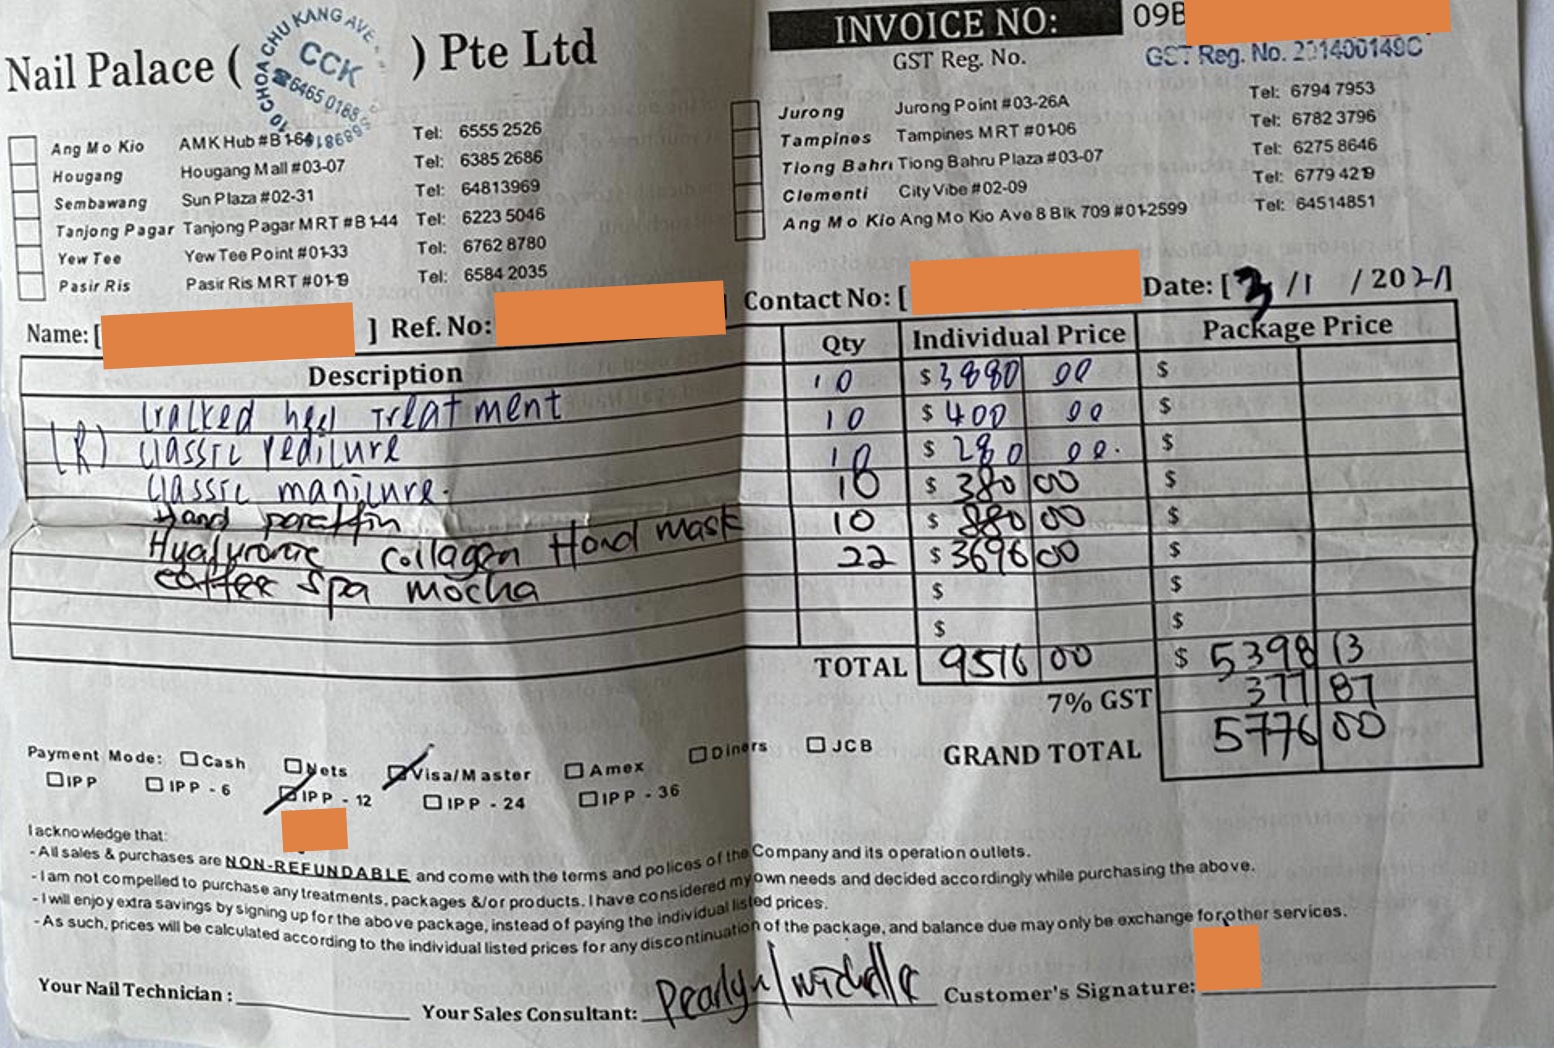 Nail Palace ( ) Pte Ltd
CHOA CHU KANG AVE
CCK
☎6465 0188
INVOICE NO: 09B
GST Reg. No. GST Reg. No. 201400149C
Ang Mo Kio AMK Hub #B1-64 Tel: 6555 2526
Hougang Hougang Mall #03-07 Tel: 6385 2686
Sembawang Sun Plaza #02-31 Tel: 64813969
Tanjong Pagar Tanjong Pagar MRT #B1-44 Tel: 6223 5046
Yew Tee Yew Tee Point #01-33 Tel: 6762 8780
Pasir Ris Pasir Ris MRT #01-19 Tel: 6584 2035
Jurong Jurong Point #03-26A Tel: 6794 7953
Tampines Tampines MRT #01-06 Tel: 6782 3796
Tiong Bahru Tiong Bahru Plaza #03-07 Tel: 6275 8646
Clementi City Vibe #02-09 Tel: 6779 4219
Ang Mo Kio Ang Mo Kio Ave 8 Blk 709 #01-2599 Tel: 64514851
Name: [ ] Ref. No: [ ] Contact No: [ Date: [3/1 / 2021]
Description Qty Individual Price Package Price
Cracked heel Treatment 10 $3880 00 $
(R) Classic Pedicure 10 $400 00 $
Classic manicure. 10 $280 00. $
Hand paraffin 10 $380 00 $
Hyaluronic Collagen Hand mask 10 $880 00 $
coffee spa mocha 22 $3696 00 $
$ $
$ $
TOTAL 9516 00 $ 5398 13
7% GST 377 87
GRAND TOTAL 5776 00
Payment Mode: Cash Nets Visa/Master Amex Diners JCB
IPP IPP - 6 IPP - 12 IPP - 24 IPP - 36
I acknowledge that:
- All sales & purchases are NON-REFUNDABLE and come with the terms and polices of the Company and its operation outlets.
- I am not compelled to purchase any treatments, packages &/or products. I have considered my own needs and decided accordingly while purchasing the above.
- I will enjoy extra savings by signing up for the above package, instead of paying the individual listed prices.
- As such, prices will be calculated according to the individual listed prices for any discontinuation of the package, and balance due may only be exchange for other services.
Your Nail Technician : Your Sales Consultant: Pearlyn/michelle Customer's Signature: